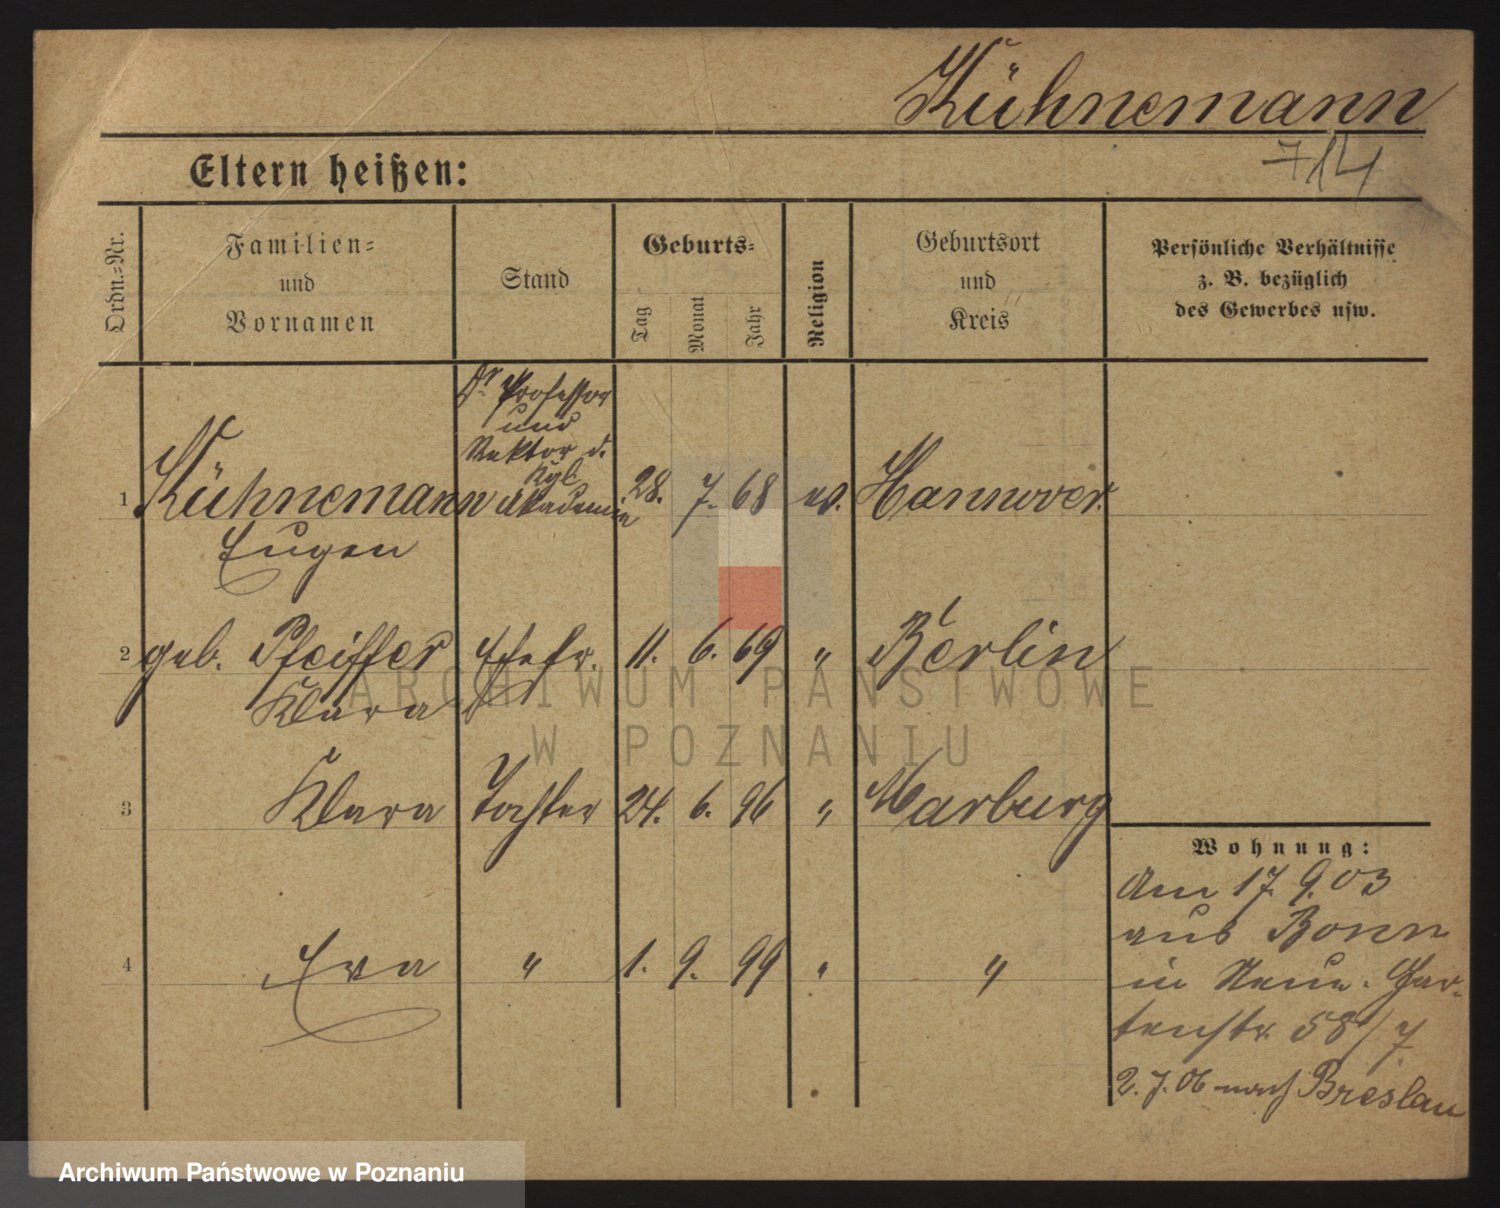 Kühnemann
714
Eltern heißen:
Ordn.-Nr.
Familien-
und
Vornamen
Stand
Geburts-
Tag
Monat
Jahr
Religion
Geburtsort
und
Kreis
Persönliche Verhältnisse
z. B. bezüglich
des Gewerbes usw.
Dr. Professor
und
Rektor d.
Kgl.
1 Kühnemann Akademie 28. 7. 68 ev. Hannover.
Eugen
2 geb. Pfeiffer Ehefr. 11. 6. 69 " Berlin
Klara
3 Klara Tochter 24. 6. 96 " Marburg
4 Eva " 1. 9. 99 " "
Wohnung:
Am 17. 9. 03
aus Bonn
in Neue. Gar-
tenstr. 58/7.
2. 7. 06 nach Breslau
ARCHIWUM PAŃSTWOWE
W POZNANIU
Archiwum Państwowe w Poznaniu